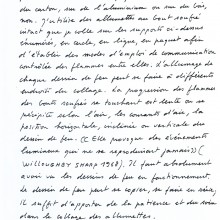 du carton, sur de l'aluminium ou sur du bois,
non. J'utilise des allumettes au bout soufré
intact que je colle sur les supports ci-dessus
énumérés, en cercle, en ligne, en paquet afin
d'établir des modes d'emploi de communication
contrôlée des flammes entre elles. L'allumage de
chaque dessin de feu peut se faire à différents
endroits du collage. La progression des flammes
des bouts soufrés se touchant est lente ou se
précipite selon l'air, les courants d'air, la
position horizontale, inclinée ou verticale du
dessin de feu. (« Elle provoque des événements
lumineux qui ne se reproduisent jamais »)
(WILLOUGHBY SHARP 1968). Il faut absolument
avoir vu les dessins de feu en fonctionnement.
Le dessin de feu peut se copier, se faire en série.
Il suffit d'apporter de la patience et du soin
dans le collage des allumettes.